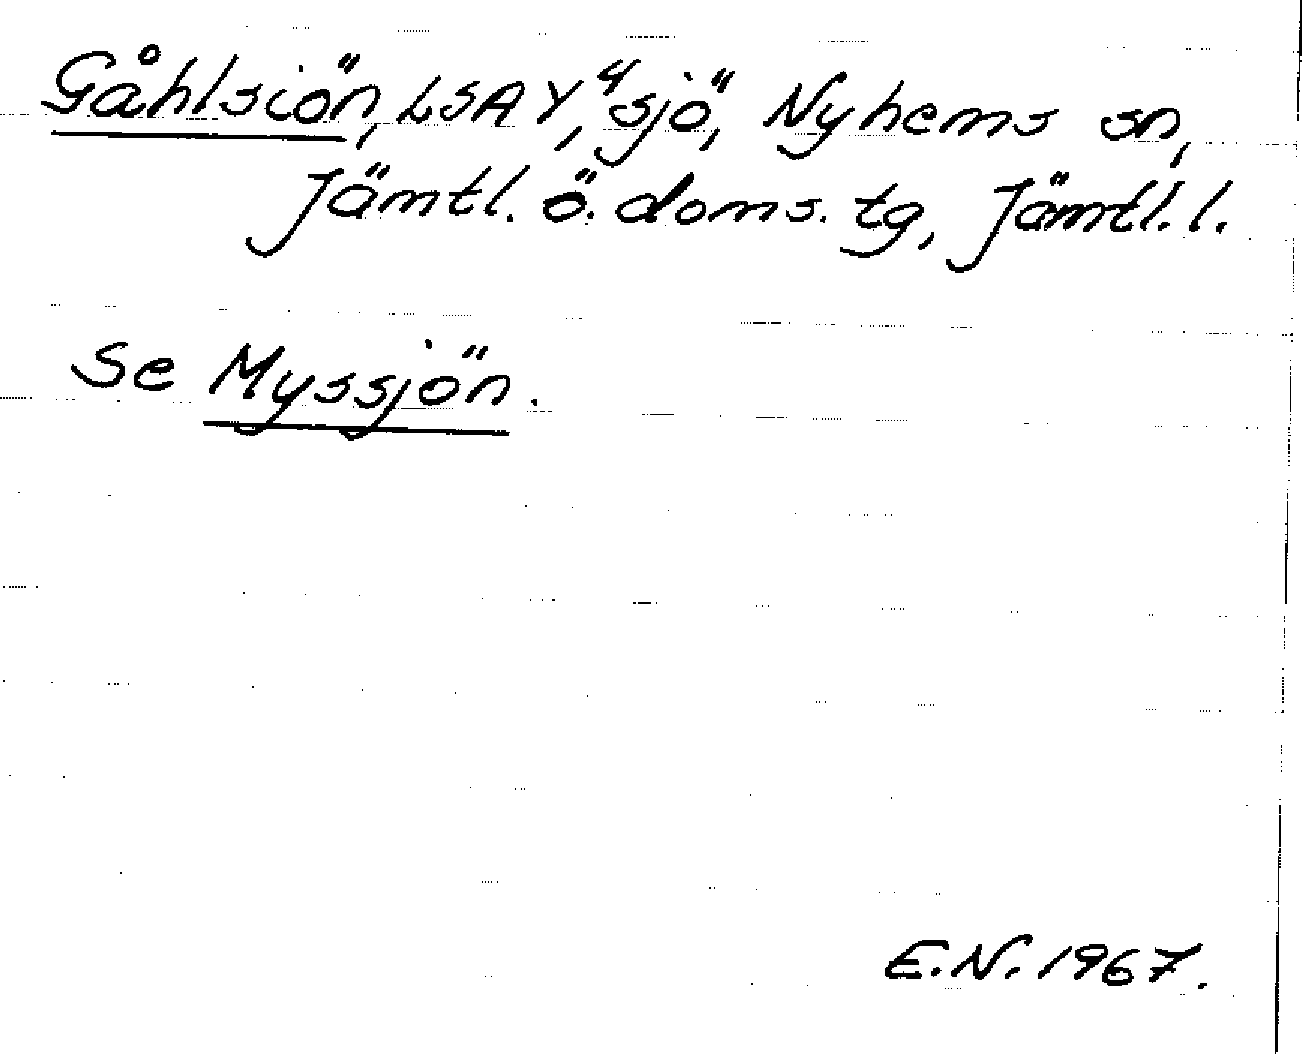 Gåhlsiön, LSA Y, "sjö", Nyhems sn,
Jämtl. ö. doms. tg, Jämtl. l.
Se Myssjön.
E.N. 1967.